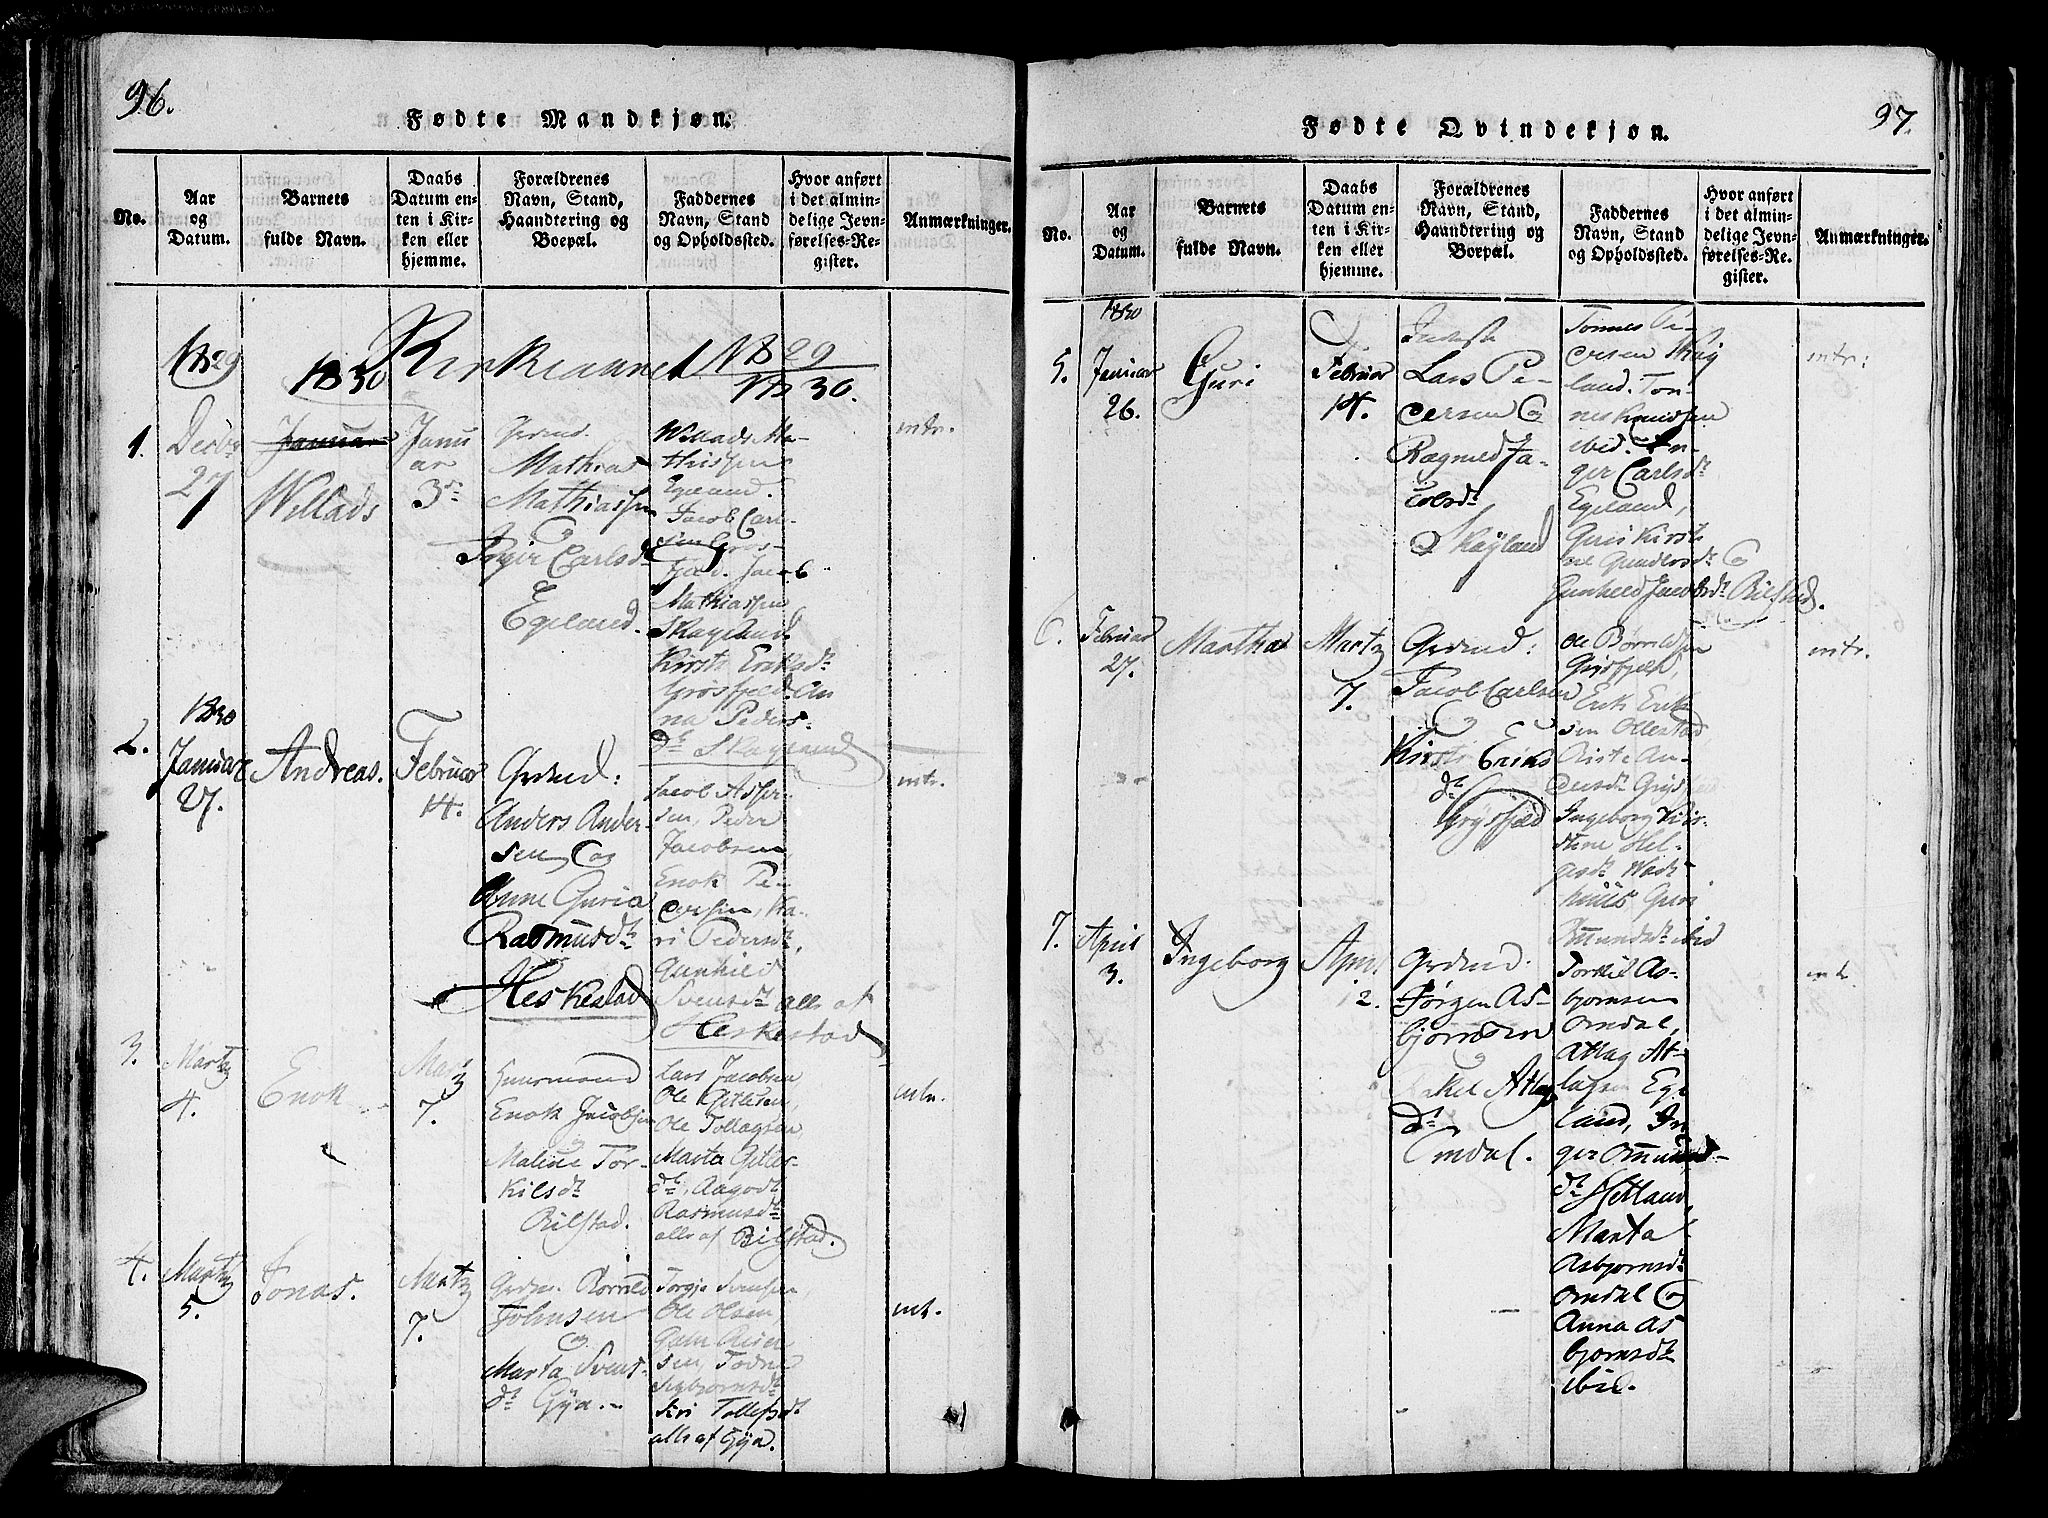 96.
Fødte Mandkjøn.
No.
Aar
og
Datum.
Barnets
fulde Navn.
Daabs
Datum en-
ten i Kir-
ken eller
hjemme.
Forældrenes
Navn, Stand,
Haandtering og
Boepæl.
Faddernes
Navn, Stand
og Opholdssted.
Hvor anført
i det almin-
delige Jevn-
førelses-Re-
gister.
Anmærkninger.
1829
1830
Kirkeaaret 1829
1830.
1.
Decbr
27
Januar
Willads
Janu
ar
3
Grdmd.
Mathias
Mathiassen
Inger Carlsdt
Egeland.
Willads Ma-
thissen
Egeland.
Jacob Carl-
sen Gros-
fjeld. Jacob
Mathiassen
Skageland
Kirsti Eriksdt
Grosfjeld An
na Peders-
dt Skageland
mtr.
1830
2.
Januar
27.
Andreas.
Februar
14.
Grdmd:
Anders Ander-
sen og
Anne Guria
Rasmusdt
Heskestad
Jacob Asser-
sen, Peder
Jacobsen
Enok Pe-
dersen, Ka-
ri Pedersdt,
Gunhild
Svensdt alle af
Heskestad
mtr.
3.
Martz
4.
Enok
Martz
7.
Huusmand
Enok Jacobsen
Maline Tor-
kilsdt
Bilstad.
Lars Jacobsen
Ole Gitlesen,
Ole Tollagsen,
Marta Gitles-
dt, Aagodt
Rasmusdt
alle af Bilstad.
mtr.
4.
Martz
5.
Jonas.
Martz
7.
Grdm. Børrild
Johnsen
og
Marta Svens-
dt Gya.
Torgje Svensen,
Ole Olsen,
sen, Todne
Sigbjørnsdt
Siri Tollefsdt
alle af Gya.
mt.
97.
Fødte Qvindekjøn.
No.
Aar
og
Datum.
Barnets
fulde Navn.
Daabs
Datum en-
ten i Kir-
ken eller
hjemme.
Forældrenes
Navn, Stand,
Haandtering og
Boepæl.
Faddernes
Navn, Stand
og Opholdssted.
Hvor anført
i det almin-
delige Jevn-
førelses-Re-
gister.
Anmærkninger.
1830
5.
Januar
26.
Guri
Februar
14.
Inderst
Lars Pe-
dersen og
Ragnild Ja-
cobsdt
Skayland
Tonnes Pe-
dersen Skay
land. Ton-
nes Knudsen
ibid. In-
ger Carlsdt
Egeland,
Guri Kirsti
ne Gundersdt og
Gunheld Jacobsdt Bilsted.
mtr:
6.
Februar
27.
Martha
Martz
7.
Grdmd:
Jacob Carlsen
og
Kirsti Eriks
dt
Grysfjeld
Ole Børrildsen
Grysfjeld,
Erik Erik-
sen Ollestad
An-
dersdt Grys
Ingeborg Kir-
stine Hel-
gesdt Wad-
huus Guri
Omundsdt ibid
mtr.
7.
April
3.
Ingeborg
April
12.
Grdmd.
Jørgen As-
bjørnsen
Atlag
dt
Omdal.
Torkil As-
bjornsen
Omdal,
Atlag At-
lagsen Ege
land, In
ger Omund-
dt Hetland,
Marta
Asbjornsdt
Omdal og
Anna As
bjornsdt
ibid.
mt.